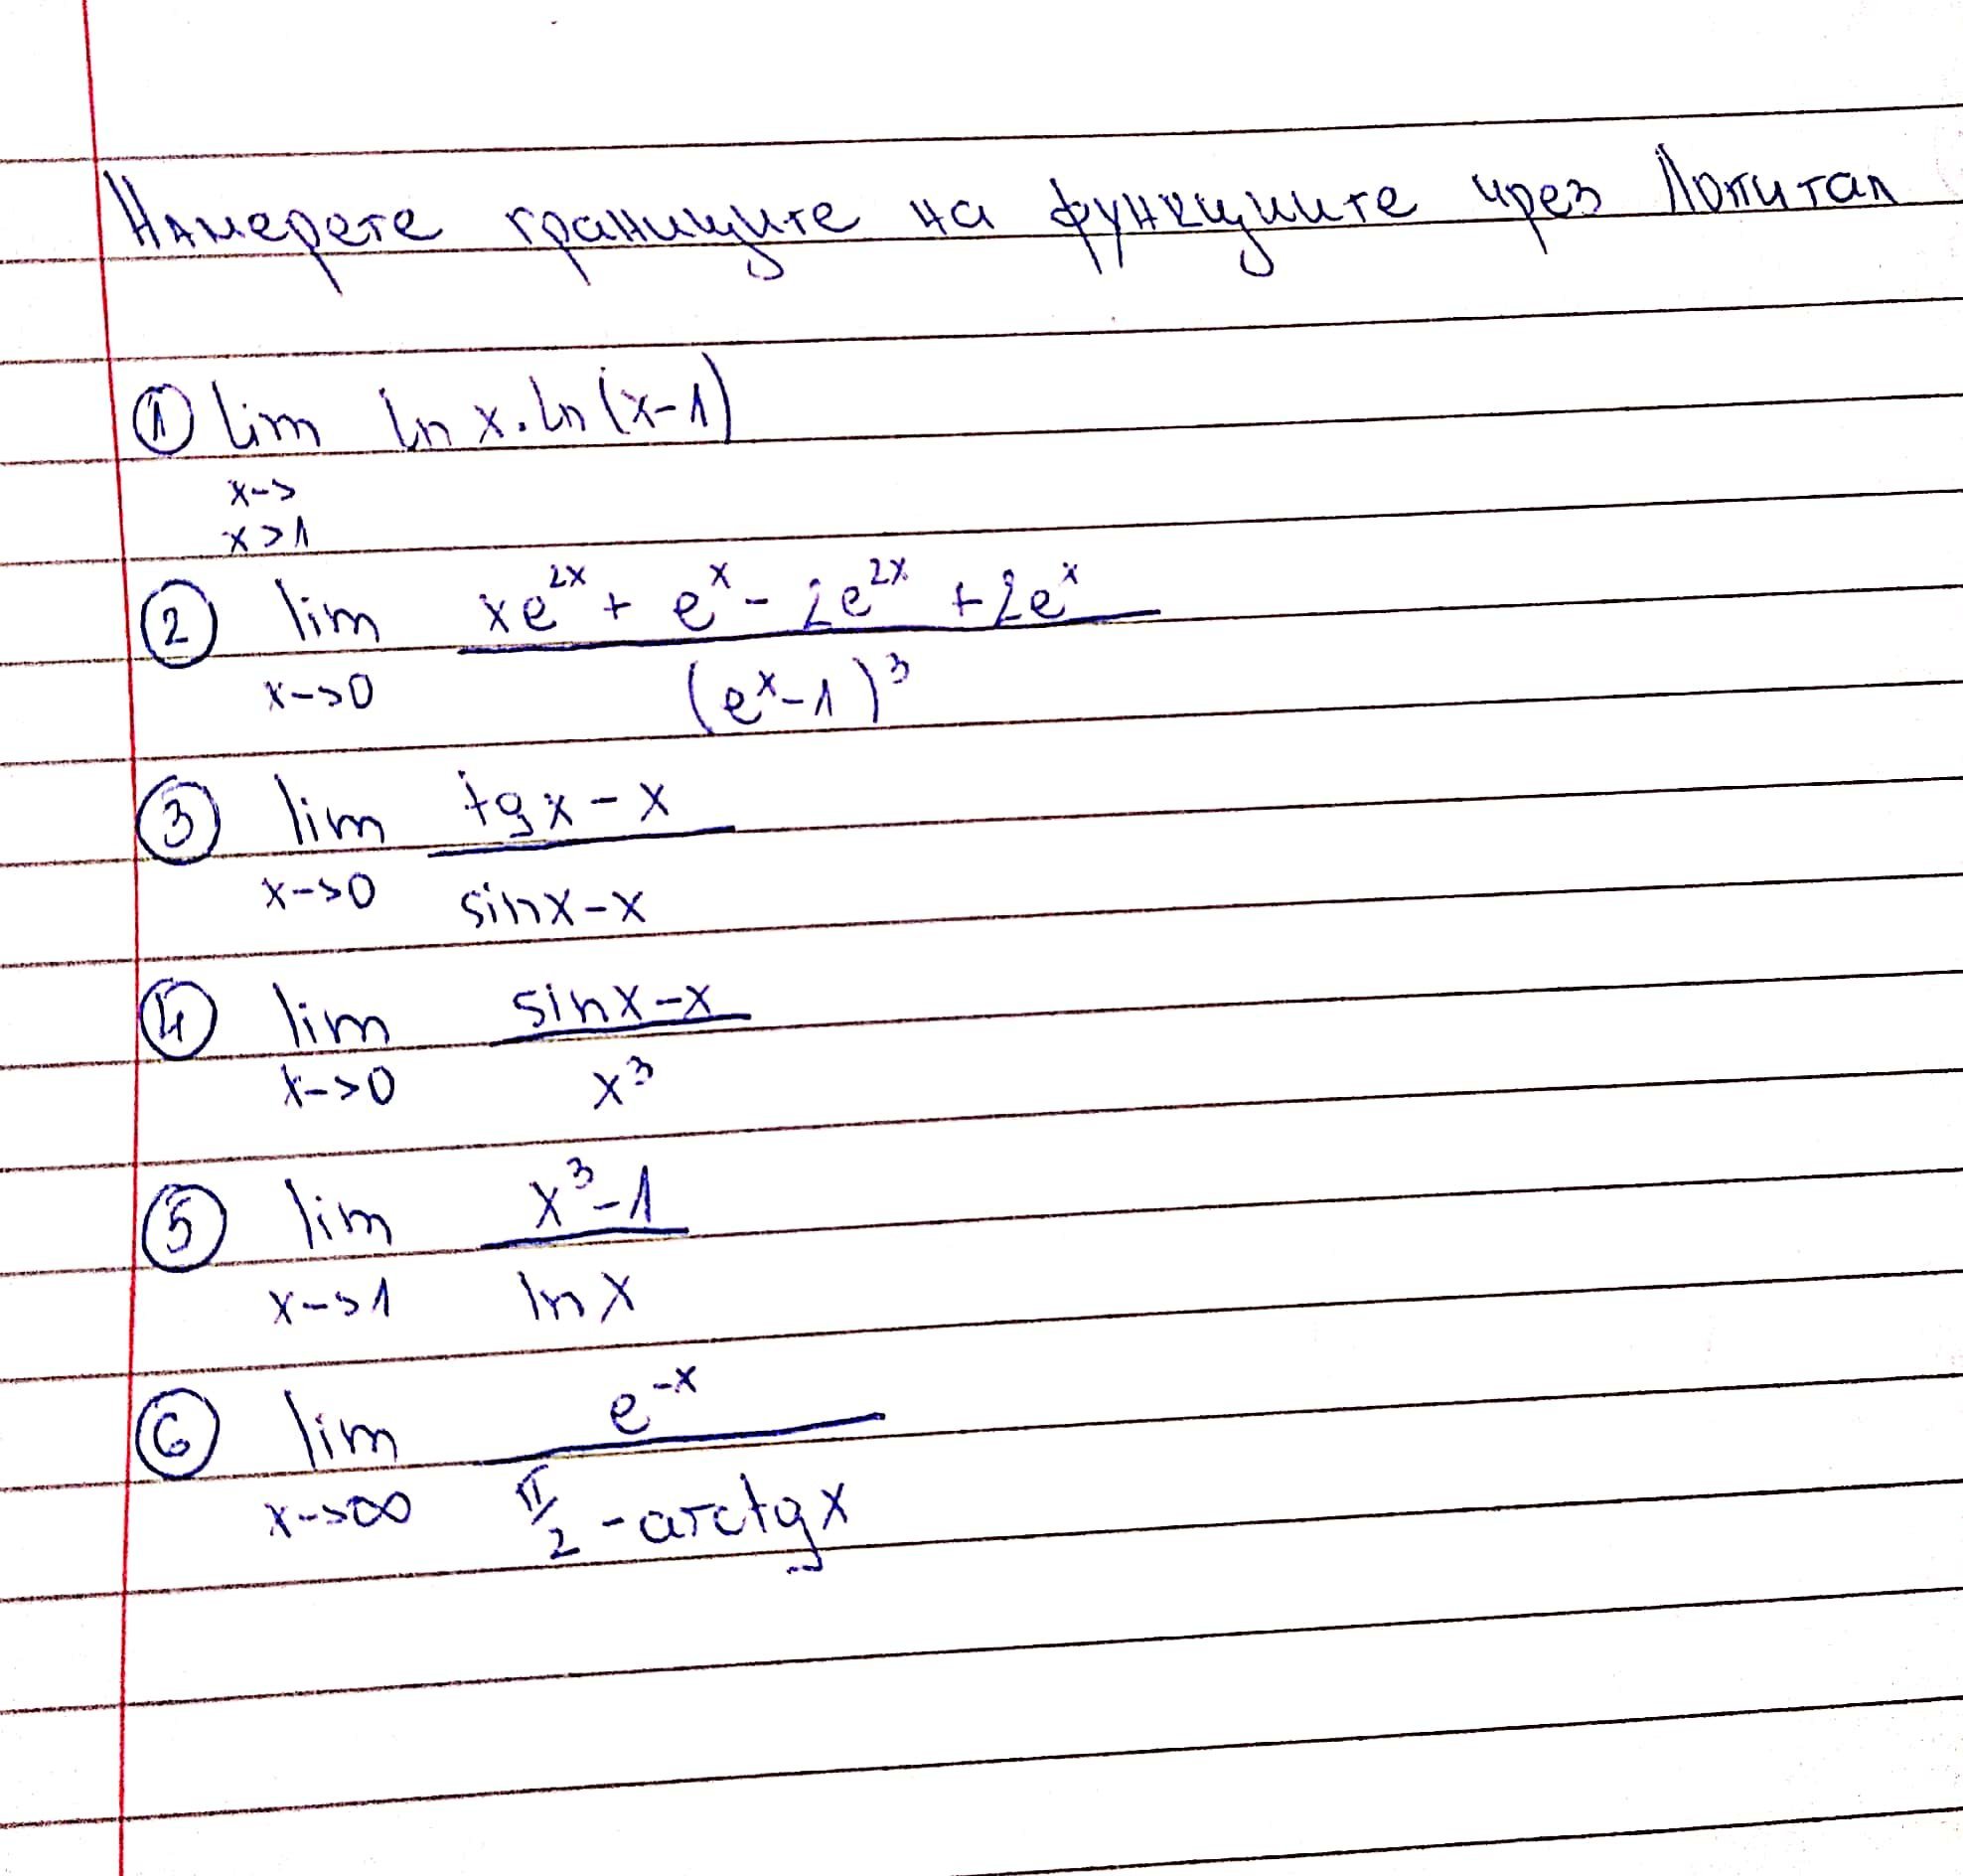 Намерете границите на функциите чрез Лопитал
① lim ln x . ln (x-1)
x->
x>1
② lim xe^2x + e^x - 2e^2x + 2e^x
x->0 (e^x-1)^3
③ lim tgx - x
x->0 sinx-x
④ lim sinx-x
x->0 x^3
⑤ lim x^3-1
x->1 lnx
⑥ lim e^-x
x->∞ π/2 - arctgx